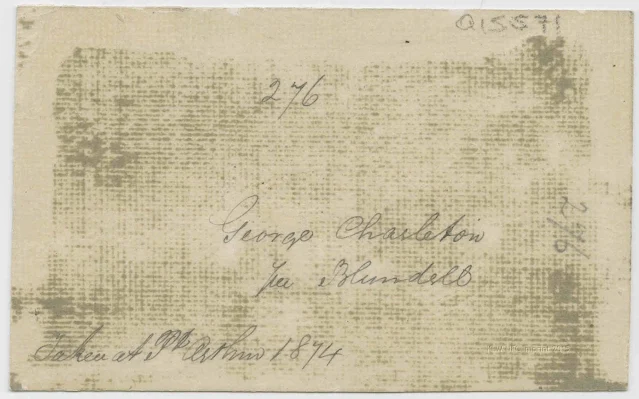 Q15571
276
George Charleton
per Blundell
Taken at Pt Arthur 1874
276